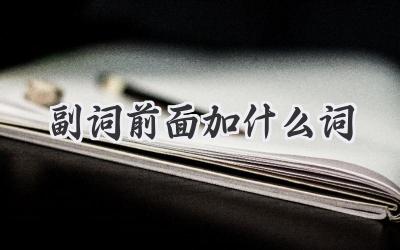 副词前面加什么词